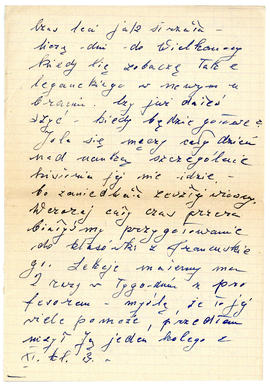 Czas leci jak strzała -
liczę - dni - do Wielkanocy
kiedy Cię zobaczę tak e
leganckiego w nowym u
braniu. Czy już dałeś
szyć - kiedy będzie gotowe?
Jola się męczy cały dzień
nad nauką szczególnie
jej nie idzie -
bo zaniedbała zeszłej wiosny.
Wczoraj cały czas przera
białyśmy przygotowanie
do klasówki z francuskie
go. Lekcje mamy
2 razy w tygodniu z pro
fesorem - myślę, że to jej
wiele pomoże, przedtem
uczył Ją jeden kolega z
XI. kl. B. -